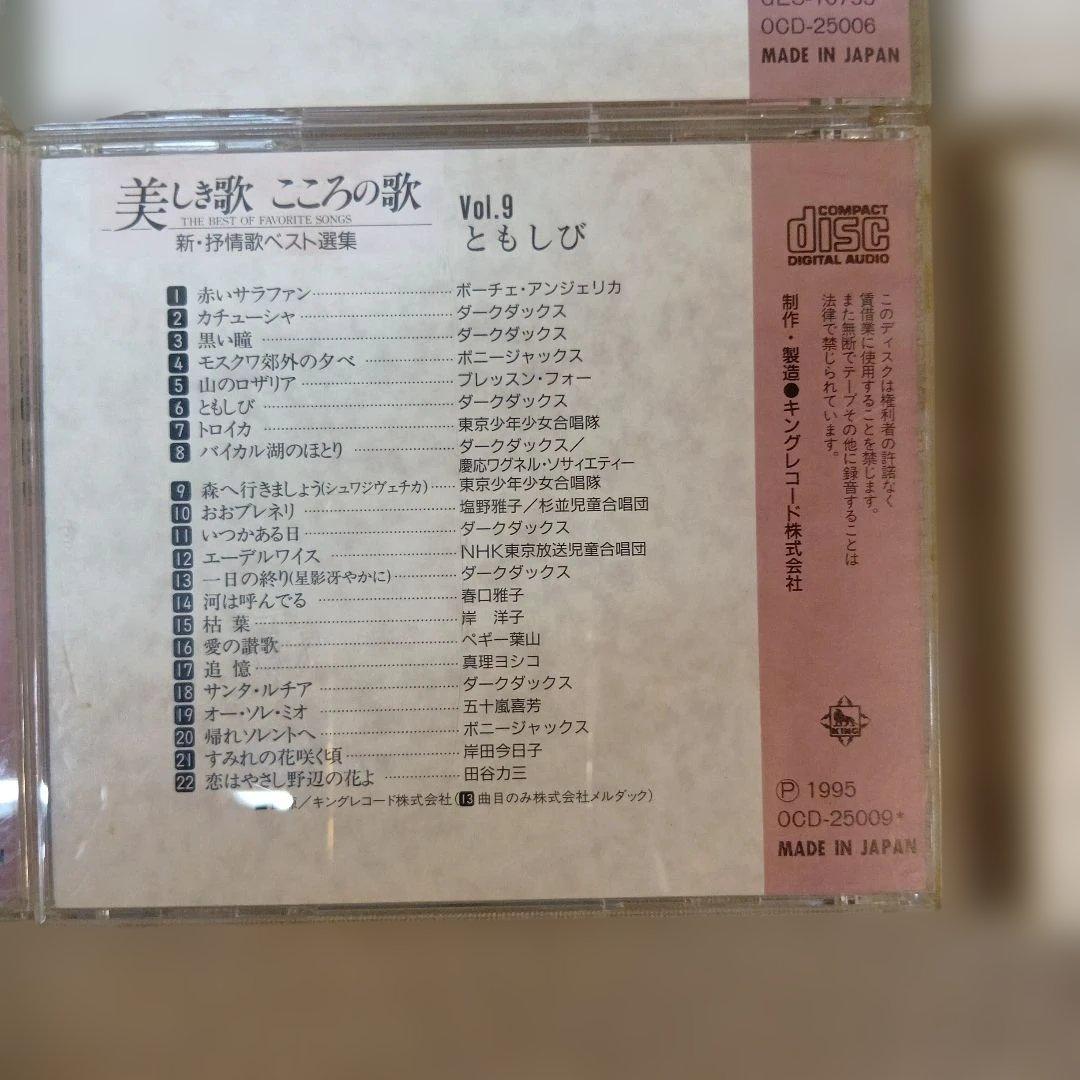 OCD-25006
MADE IN JAPAN
美しき歌 こころの歌
THE BEST OF FAVORITE SONGS
新・抒情歌ベスト選集
Vol.9
ともしび
1 赤いサラファン ボーチェ・アンジェリカ
2 カチューシャ ダークダックス
3 黒い瞳 ダークダックス
4 モスクワ郊外の夕べ ボニージャックス
5 山のロザリア ブレッスン・フォー
6 ともしび ダークダックス
7 トロイカ 東京少年少女合唱隊
8 バイカル湖のほとり ダークダックス／
慶応ワグネル・ソサィエティー
9 森へ行きましょう(シュワジヴェチカ) 東京少年少女合唱隊
10 おおブレネリ 塩野雅子／杉並児童合唱団
11 いつかある日 ダークダックス
12 エーデルワイス NHK東京放送児童合唱団
13 一日の終り(星影冴やかに) ダークダックス
14 河は呼んでる 春口雅子
15 枯葉 岸 洋子
16 愛の讃歌 ペギー葉山
17 追憶 真理ヨシコ
18 サンタ・ルチア ダークダックス
19 オー・ソレ・ミオ 五十嵐喜芳
20 帰れソレントへ ボニージャックス
21 すみれの花咲く頃 岸田今日子
22 恋はやさし野辺の花よ 田谷力三
／キングレコード株式会社(13曲目のみ株式会社メルダック)
COMPACT
disc
DIGITAL AUDIO
このディスクは権利者の許諾なく
賃借業に使用することを禁じます。
また無断でテープその他に録音することは
法律で禁じられています。
制作・製造●キングレコード株式会社
KING
Ⓟ 1995
OCD-25009*
MADE IN JAPAN